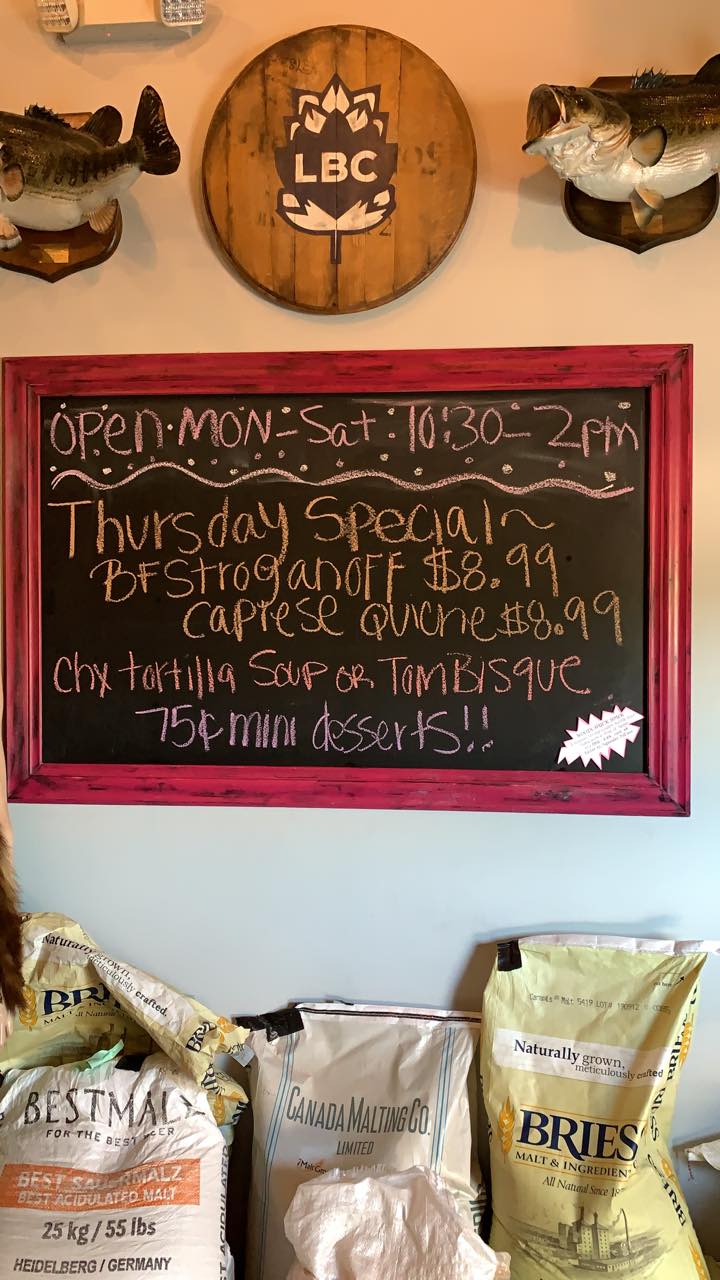 LBC
OPEN MON-Sat: 10:30-2pm
Thursday Special~
BFStroganoff $8.99
Caprese Quiche $8.99
Chx tortilla Soup or Tom Bisque
75¢ mini desserts!!
Naturally grown,
meticulously crafted.
BRIE
MALT &
All Natural
BESTMAL
FOR THE BEST BEER
BEST SAUERMALZ
BEST ACIDULATED MALT
25 kg / 55 lbs
HEIDELBERG / GERMANY
CANADA MALTING CO.
LIMITED
Carapils ® Malt 5419 LOT# 190912
Naturally grown,
meticulously crafted
BRIES
MALT & INGREDIEN
All Natural Since 18